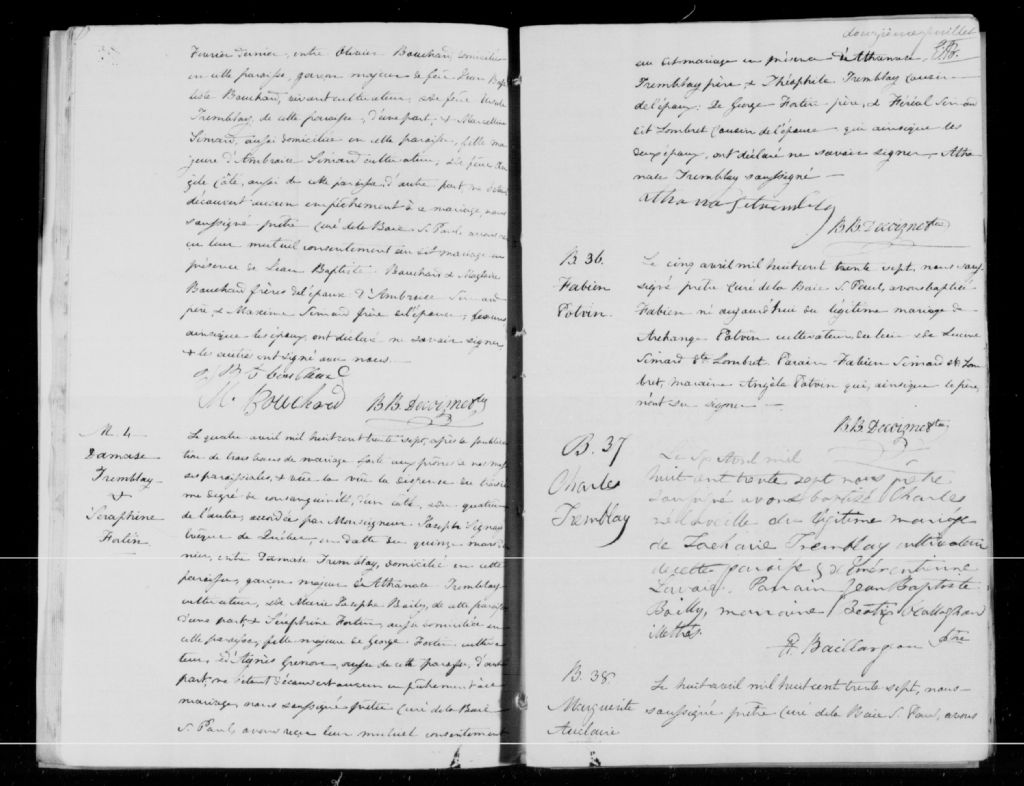 Fevrier dernier, entre Olivier Bouchard, domicilié
en cette paroisse, garçon majeur de feu Jean Bap
tiste Bouchard, vivant cultivateur, & de feue Ursule
Tremblay, de cette paroisse, d'une part, & Marcelline
Simard, aussi domiciliée en cette paroisse, fille ma
jeure d'Ambroise Simard cultivateur, & de feue
Côté, aussi de cette paroisse, d'autre part, ne s'étant
découvert aucun empêchement à ce mariage, nous
soussigné prêtre Curé de la Baie S. Paul, avons re
çu leur mutuel consentement au dit mariage en
présence de Jean Baptiste Bouchard & Magloire
Bouchard frères de l'époux d'Ambroise Simard
père & Maxime Simard frère de l'épouse;
ainsique les époux, ont déclaré ne savoir signer
& les autres ont signé avec nous.
M. Bouchard B.B. Decoigne Ptre
M. 4
Damase
Tremblay
&
Séraphine
Fortin
Le quatre avril mil huit cent trente sept, après la publica
tion de trois bans de mariage faite aux prônes de nos mes
ses paroissiales, & vu la dispense du troisiè
me degré de consanguinité, d'un côté, & du quatre
de l'autre, accordée par Monseigneur Joseph Signay
Evêque de Québec, en datte du quinze mars der
nier, entre Damase Tremblay, domicilié en cette
paroisse, garçon majeur d'Athanase Tremblay
cultivateur, & de Marie Josephe Bailly, de cette paroisse
d'une part, & Séraphine Fortin, aussi domiciliée en
cette paroisse, fille majeure de George Fortin cultiva
teur, & d'Agnès Grenon, aussi de cette paroisse, d'autre
part, ne s'étant découvert aucun empêchement à ce
mariage, nous soussigné prêtre Curé de la Baie
S. Paul, avons reçu leur mutuel consentement
douzième feuillet
au dit mariage en présence d'Athanase
Tremblay père, & Théophile Tremblay cousin
de l'époux; De George Fortin père, & Féréal Simard
dit Lombret cousin de l'épouse qui ainsique les
deux époux, ont déclaré ne savoir signer, Atha
nase Tremblay soussigné
B.B. Decoigne Ptre
B. 36.
Fabien
Potvin.
Le cinq avril mil huit cent trente sept, nous sous
signé prêtre Curé de la Baie S. Paul, avons baptisé
Fabien né aujourd'hui du légitime mariage de
Archange Potvin cultivateur du lieu & de Lucine
Simard dt. Lombret. Parain Fabien Simard dt. Lom
bret, maraine Angèle Potvin qui, ainsique le père,
n'ont su signer
B.B. Decoigne Ptre
B. 37
Charles
Tremblay
Le Six Avril mil
huit cent trente sept nous prêtre
soussigné avons baptisé Charles
né la veille du légitime mariage
de Zacharie Tremblay cultivateur
de cette paroisse & d'Emérentienne
Lavoie. Parrain Jean Baptiste
Bailly, marraine O'Callaghan
Baillargeon ptre
B. 38
Marguerite
Auclaire
Le huit avril mil huit cent trente sept, nous
soussigné prêtre Curé de la Baie S. Paul, avons